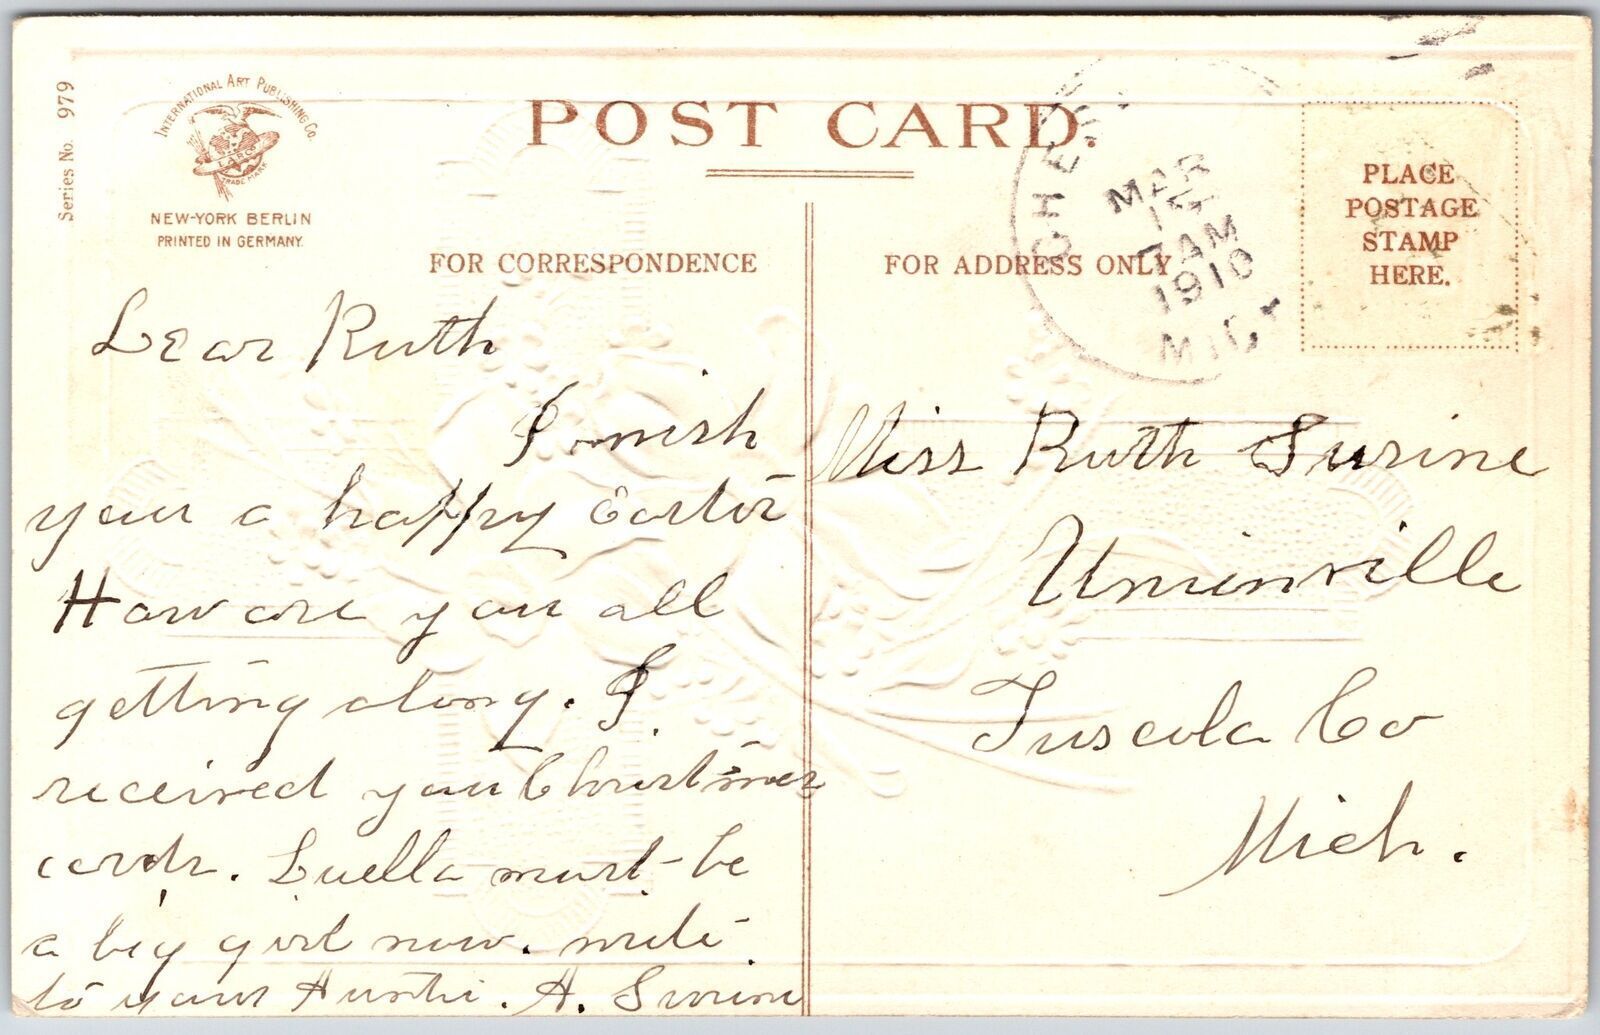 Series No. 979
INTERNATIONAL ART PUBLISHING CO.
TRADE MARK
NEW-YORK BERLIN
PRINTED IN GERMANY
POST CARD.
FOR CORRESPONDENCE
FOR ADDRESS ONLY
PLACE
POSTAGE
STAMP
HERE.
MAR
7 AM
1910
MICH
Dear Ruth
I wish
you a happy Easter
How are you all
getting along. I
received your Christmas
cards. Luella must be
a big girl now. write
to your Auntie. A. Surine
Miss Ruth Surine
Unionville
Tuscola Co
Mich.